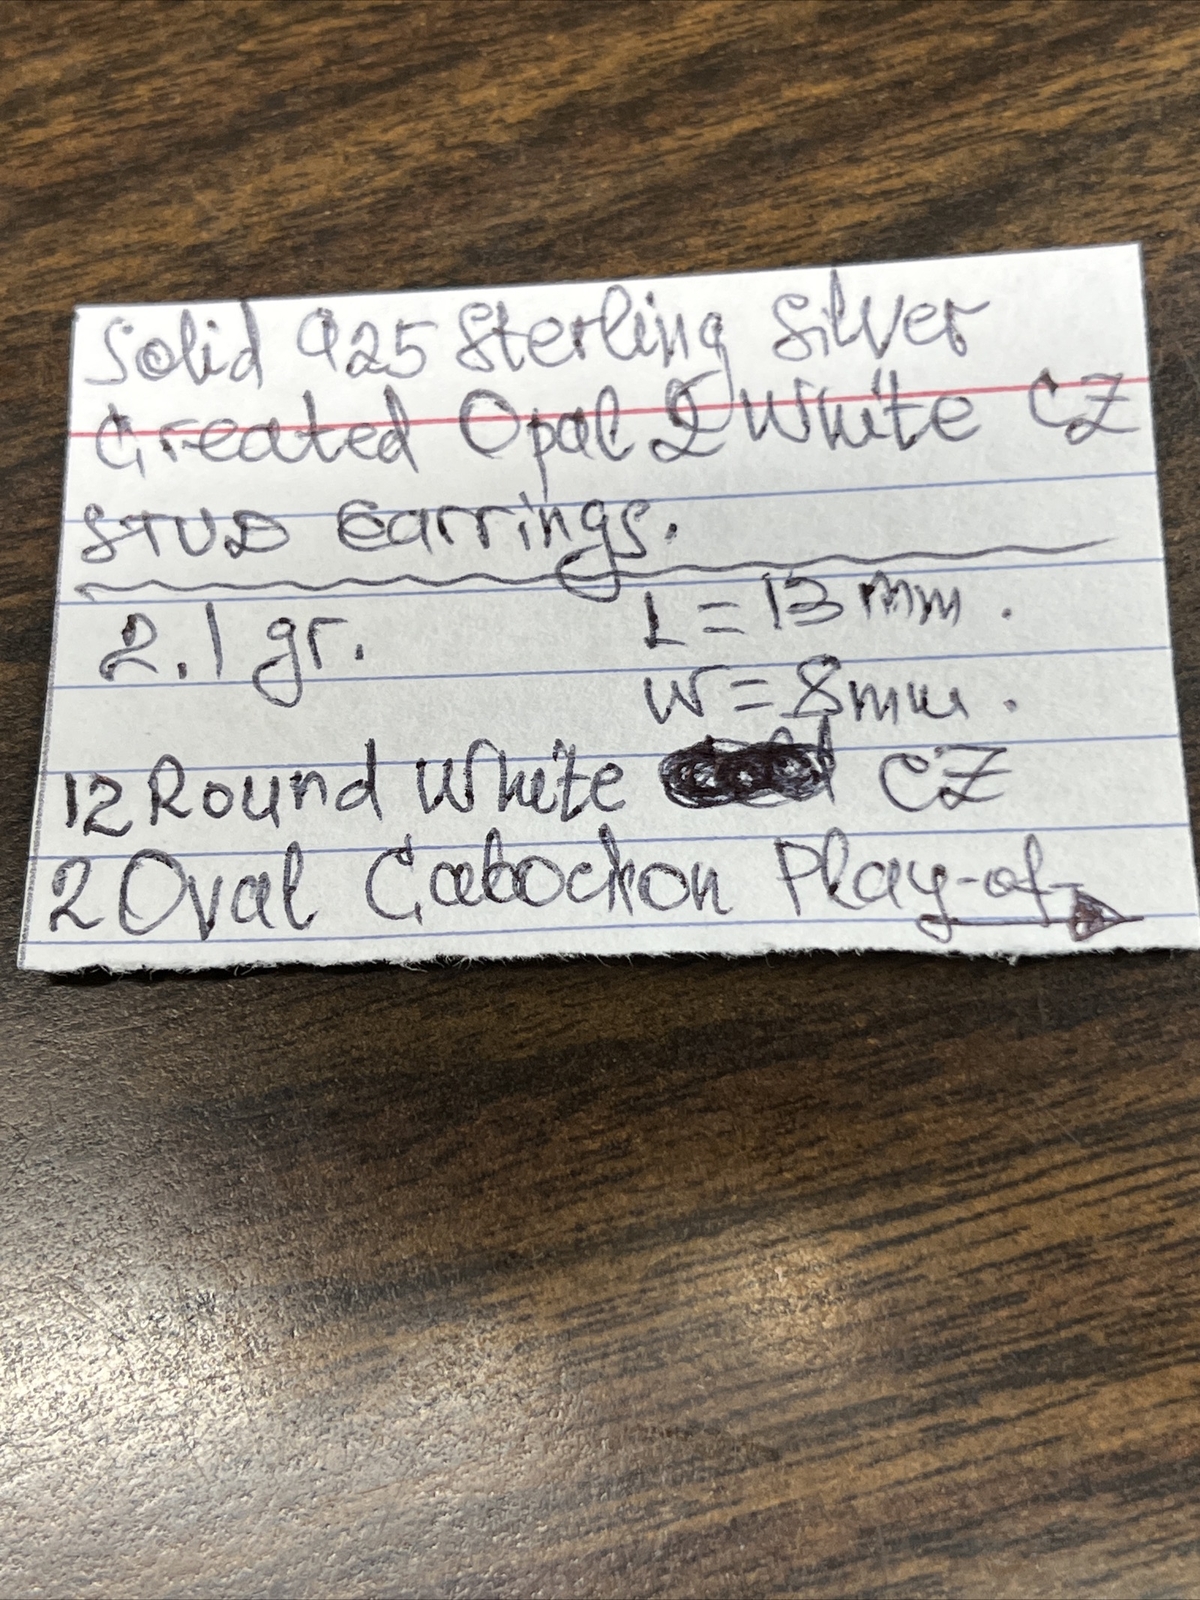 Solid 925 Sterling Silver
Created Opal & White CZ
STUD earrings.
2.1 gr.
L = 13 mm.
W = 8 mm.
12 Round White CZ
2 Oval Cabochon Play-of-